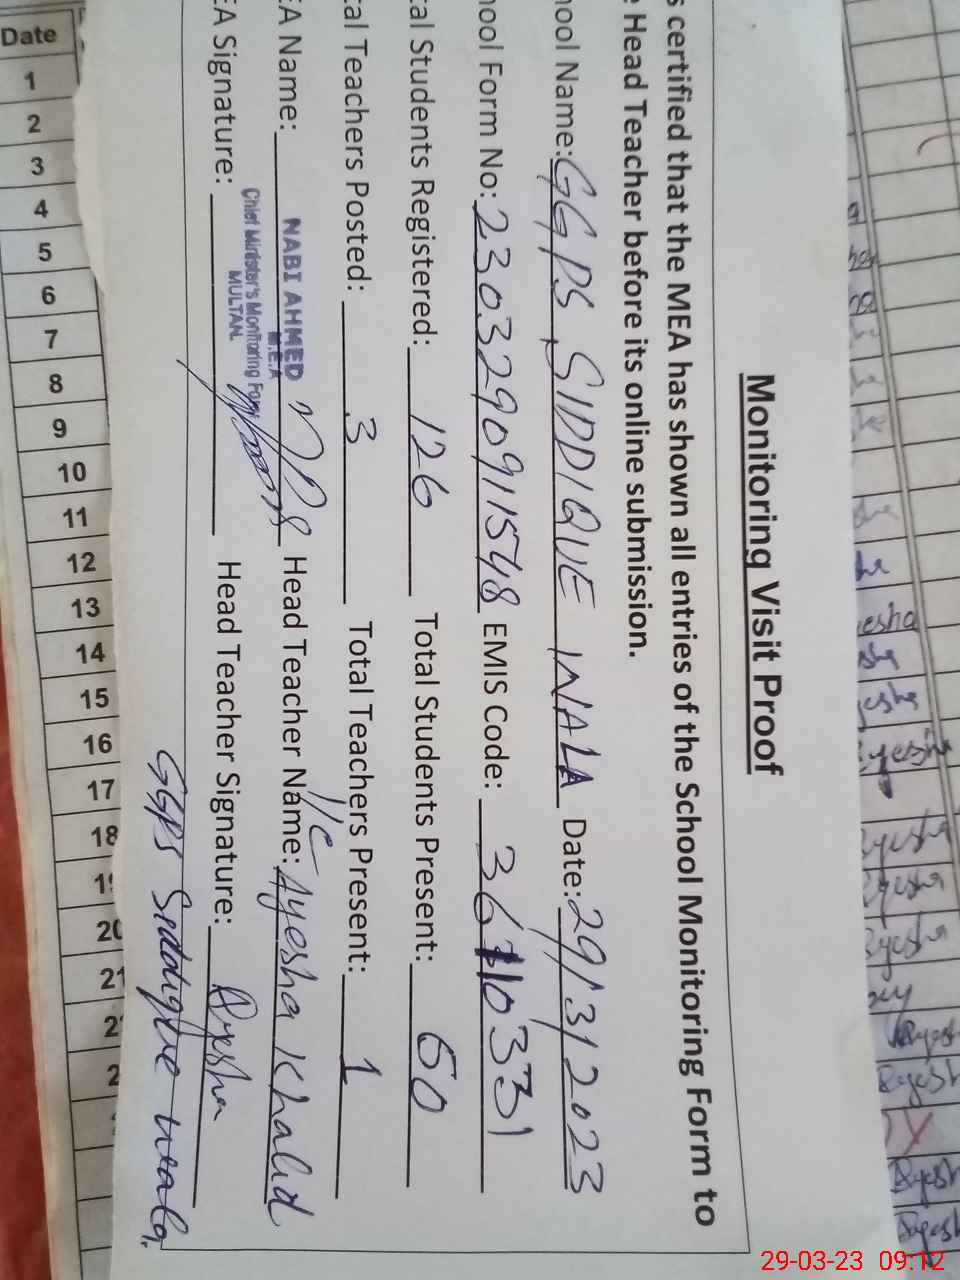 Monitoring Visit Proof
s certified that the MEA has shown all entries of the School Monitoring Form to
Head Teacher before its online submission.
ool Name: GGPS SIDDIQUE WALA Date: 29/3/2023
ool Form No: 230329091548 EMIS Code: 36110331
tal Students Registered: 126 Total Students Present: 60
tal Teachers Posted: 3 Total Teachers Present: 1
EA Name: NABI AHMED Head Teacher Name: I/C Ayesha Khalid
M.E.A
Chief Minister's Monitoring Force
MULTAN.
EA Signature: Head Teacher Signature: Ayesha
GGPS Seddique wala.
Date
1
2
3
4
5
6
7
8
9
10
11
12
13
14
15
16
17
18
20
21
29-03-23 09:12